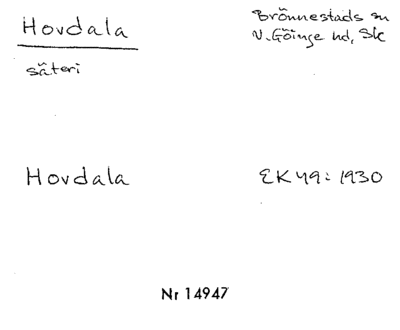 Hovdala
Brönnestads sn
V. Göinge hd, Sk
säteri
Hovdala
EK 49: 1930
Nr 14947